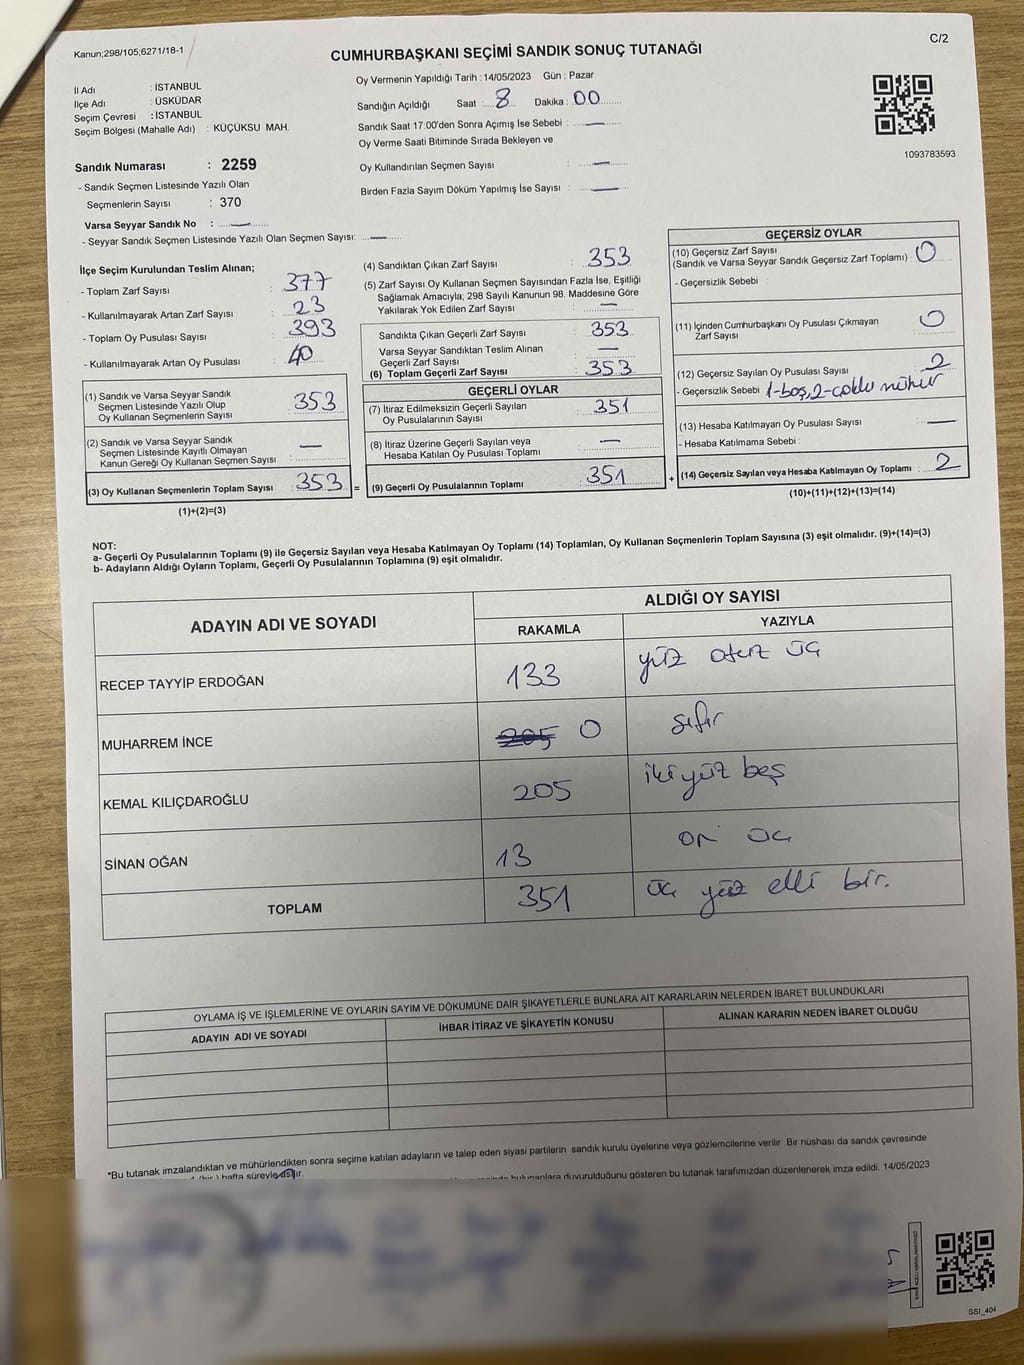 Kanun;298/105;6271/18-1
CUMHURBAŞKANI SEÇİMİ SANDIK SONUÇ TUTANAĞI
C/2
İl Adı : İSTANBUL
İlçe Adı : ÜSKÜDAR
Seçim Çevresi : İSTANBUL
Seçim Bölgesi (Mahalle Adı) : KÜÇÜKSU MAH.
Sandık Numarası : 2259
- Sandık Seçmen Listesinde Yazılı Olan
Seçmenlerin Sayısı : 370
Varsa Seyyar Sandık No : —
- Seyyar Sandık Seçmen Listesinde Yazılı Olan Seçmen Sayısı: —
Oy Vermenin Yapıldığı Tarih : 14/05/2023 Gün : Pazar
Sandığın Açıldığı Saat : 8 Dakika : 00
Sandık Saat 17:00'den Sonra Açımış İse Sebebi : —
Oy Verme Saati Bitiminde Sırada Bekleyen ve
Oy Kullandırılan Seçmen Sayısı : —
Birden Fazla Sayım Döküm Yapılmış İse Sayısı : —
1093783593
İlçe Seçim Kurulundan Teslim Alınan;
- Toplam Zarf Sayısı : 377
- Kullanılmayarak Artan Zarf Sayısı : 23
- Toplam Oy Pusulası Sayısı : 393
- Kullanılmayarak Artan Oy Pusulası : 40
(1) Sandık ve Varsa Seyyar Sandık
Seçmen Listesinde Yazılı Olup
Oy Kullanan Seçmenlerin Sayısı : 353
(2) Sandık ve Varsa Seyyar Sandık
Seçmen Listesinde Kayıtlı Olmayan
Kanun Gereği Oy Kullanan Seçmen Sayısı : —
(3) Oy Kullanan Seçmenlerin Toplam Sayısı : 353 =
(1)+(2)=(3)
(4) Sandıktan Çıkan Zarf Sayısı : 353
(5) Zarf Sayısı Oy Kullanan Seçmen Sayısından Fazla İse, Eşitliği
Sağlamak Amacıyla; 298 Sayılı Kanunun 98. Maddesine Göre
Yakılarak Yok Edilen Zarf Sayısı : —
Sandıkta Çıkan Geçerli Zarf Sayısı : 353
Varsa Seyyar Sandıktan Teslim Alınan
Geçerli Zarf Sayısı : —
(6) Toplam Geçerli Zarf Sayısı : 353
GEÇERLİ OYLAR
(7) İtiraz Edilmeksizin Geçerli Sayılan
Oy Pusulasının Sayısı : 351
(8) İtiraz Üzerine Geçerli Sayılan veya
Hesaba Katılan Oy Pusulası Toplamı : —
(9) Geçerli Oy Pusulalarının Toplamı : 351 +
GEÇERSİZ OYLAR
(10) Geçersiz Zarf Sayısı
(Sandık ve Varsa Seyyar Sandık Geçersiz Zarf Toplamı) : 0
- Geçersizlik Sebebi :
(11) İçinden Cumhurbaşkanı Oy Pusulası Çıkmayan
Zarf Sayısı : 0
(12) Geçersiz Sayılan Oy Pusulası Sayısı : 2
- Geçersizlik Sebebi : 1-boş, 2-çoklu mühür
(13) Hesaba Katılmayan Oy Pusulası Sayısı : —
- Hesaba Katılmama Sebebi :
(14) Geçersiz Sayılan veya Hesaba Katılmayan Oy Toplamı : 2
(10)+(11)+(12)+(13)=(14)
NOT:
a- Geçerli Oy Pusulalarının Toplamı (9) ile Geçersiz Sayılan veya Hesaba Katılmayan Oy Toplamı (14) Toplamları, Oy Kullanan Seçmenlerin Toplam Sayısına (3) eşit olmalıdır. (9)+(14)=(3)
b- Adayların Aldığı Oyların Toplamı, Geçerli Oy Pusulalarının Toplamına (9) eşit olmalıdır.
ADAYIN ADI VE SOYADI
ALDIĞI OY SAYISI
RAKAMLA YAZIYLA
RECEP TAYYİP ERDOĞAN 133 yüz otuz üç
MUHARREM İNCE 205 0 sıfır
KEMAL KILIÇDAROĞLU 205 iki yüz beş
SİNAN OĞAN 13 on üç
TOPLAM 351 üç yüz elli bir.
OYLAMA İŞ VE İŞLEMLERİNE VE OYLARIN SAYIM VE DÖKÜMÜNE DAİR ŞİKAYETLERLE BUNLARA AİT KARARLARIN NELERDEN İBARET BULUNDUKLARI
ADAYIN ADI VE SOYADI İHBAR İTİRAZ VE ŞİKAYETİN KONUSU ALINAN KARARIN NEDEN İBARET OLDUĞU
*Bu tutanak imzalandıktan ve mühürlendikten sonra seçime katılan adayların ve talep eden siyasi partilerin sandık kurulu üyelerine veya gözlemcilerine verilir .Bir nüshası da sandık çevresinde
(bir ) hafta süreyle asılır. bulunanlara duyurulduğunu gösteren bu tutanak tarafımızdan düzenlenerek imza edildi. 14/05/2023
SSI_404